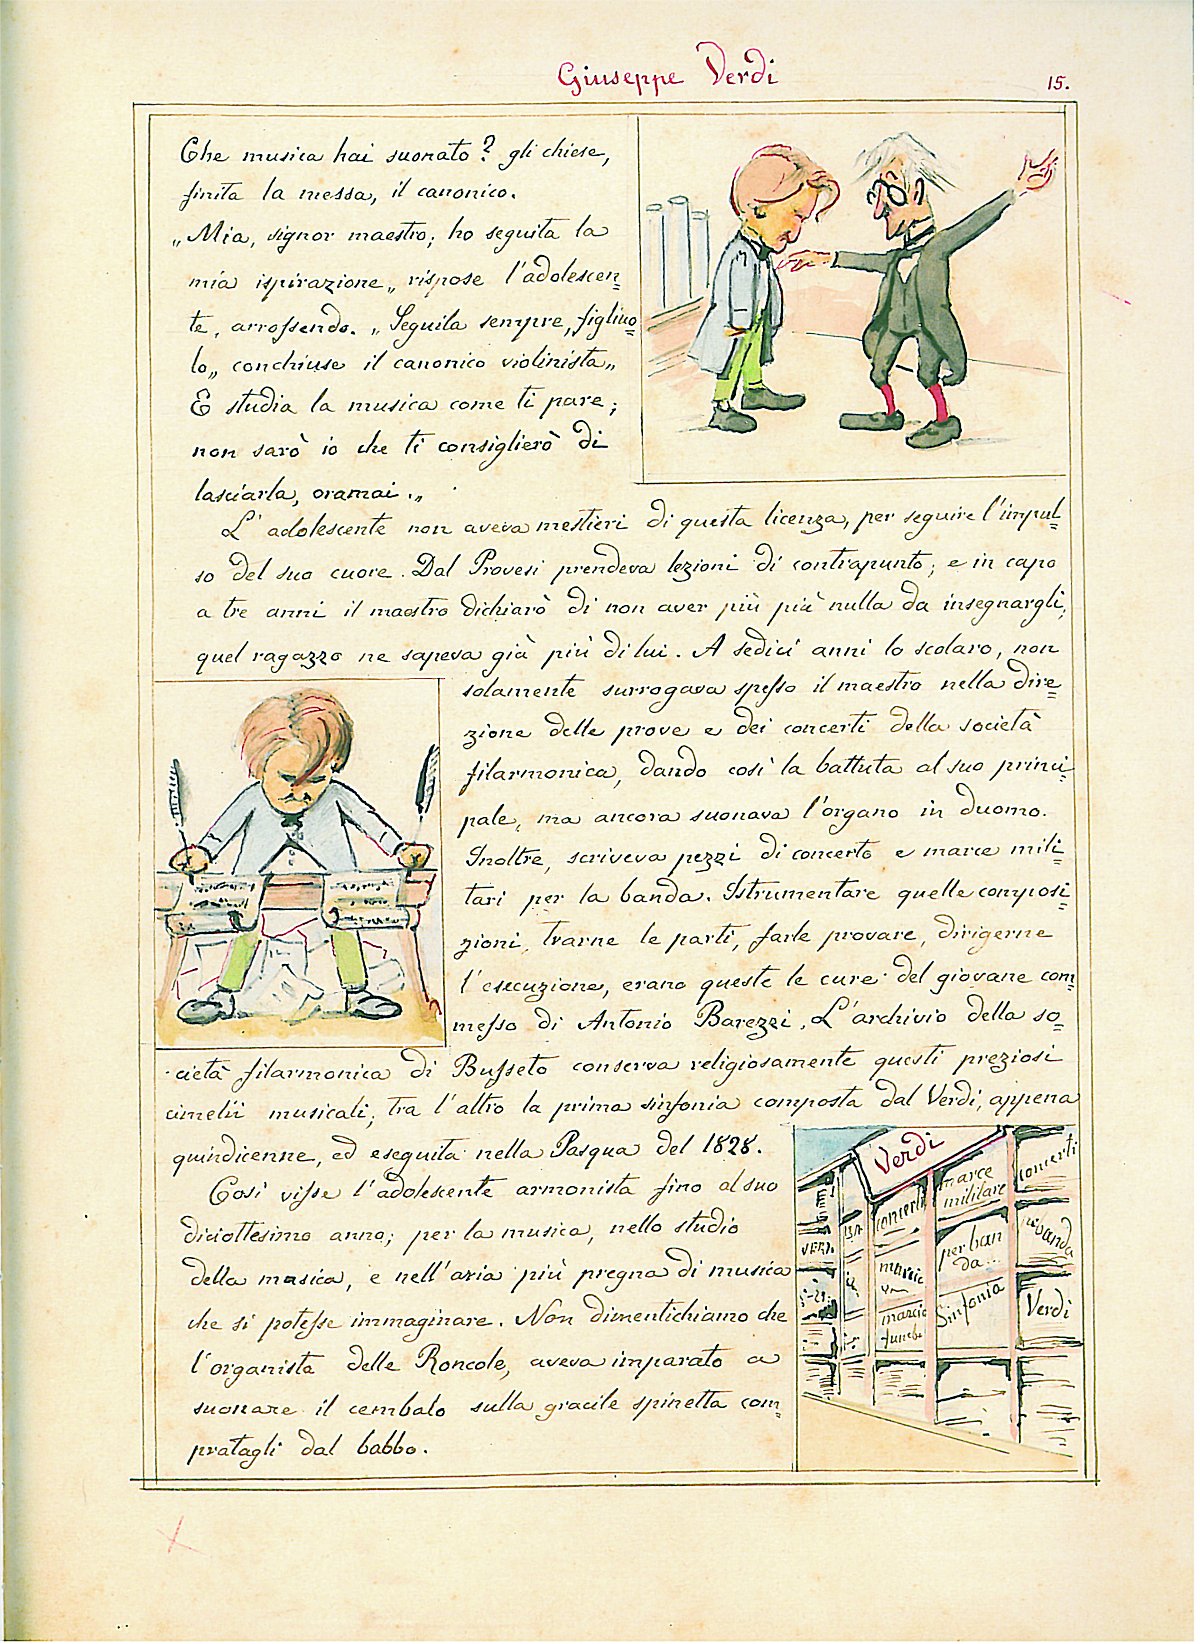 Giuseppe Verdi
15.
Che musica hai suonato? gli chiese,
finita la messa, il canonico.
„Mia, signor maestro; ho seguita la
mia ispirazione„ rispose l'adolescen=
te, arrossendo. „Seguila sempre, figliuo=
lo„ conchiuse il canonico violinista„
E studia la musica come ti pare;
non sarò io che ti consiglierò di
lasciarla, oramai.„
L'adolescente non aveva mestieri di questa licenza, per seguire l'impul=
so del suo cuore. Dal Provesi prendeva lezioni di contrapunto; e in capo
a tre anni il maestro dichiarò di non aver più più nulla da insegnargli,
quel ragazzo ne sapeva già più di lui. A sedici anni lo scolaro, non
solamente surrogava spesso il maestro nella dire=
zione delle prove e dei concerti della società
filarmonica, dando così la battuta al suo princi=
pale, ma ancora suonava l'organo in duomo.
Inoltre, scriveva pezzi di concerto e marce mili=
tari per la banda. Istrumentare quelle composi=
zioni, trarne le parti, farle provare, dirigerne
l'esecuzione, erano queste le cure del giovane com=
messo di Antonio Barezzi. L'archivio della so=
cietà filarmonica di Busseto conserva religiosamente questi preziosi
cimelii musicali; tra l'altro la prima sinfonia composta dal Verdi, appena
quindicenne, ed eseguita nella Pasqua del 1828.
Così visse l'adolescente armonista fino al suo
diciottesimo anno; per la musica, nello studio
della musica, e nell'aria più pregna di musica
che si potesse immaginare. Non dimentichiamo che
l'organista delle Roncole, aveva imparato a
suonare il cembalo sulla gracile spinetta com=
pratagli dal babbo.
Verdi
concerti
marce
militare
concerti
per ban
da...
banda
VERDI
marcie
marcia
funebre
Sinfonia
Verdi